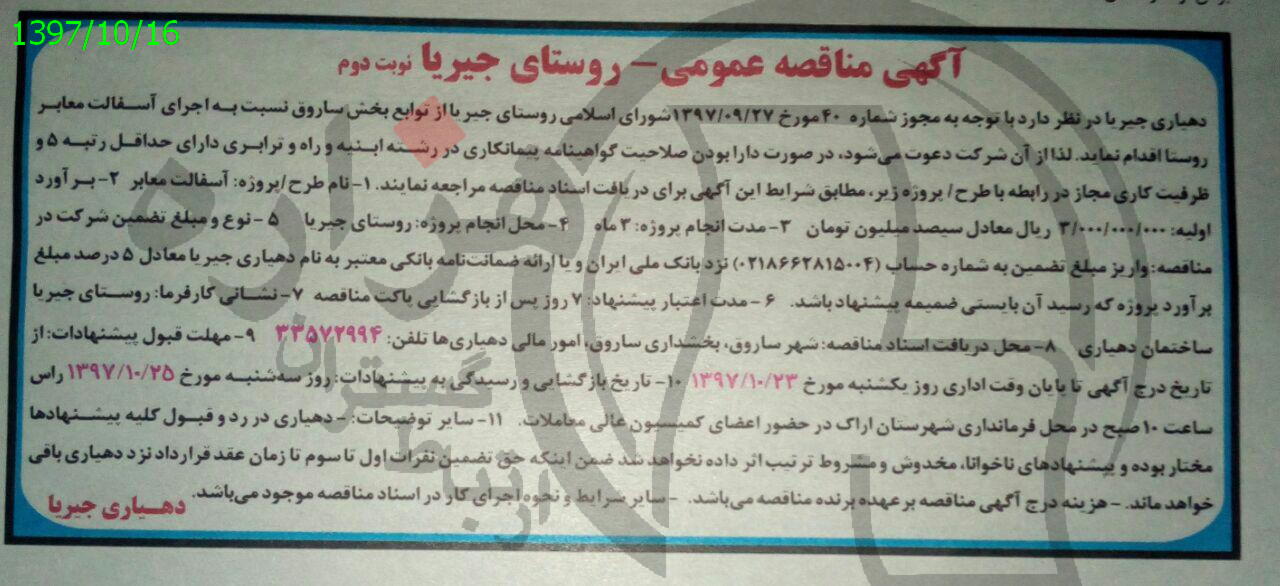 1397/10/16
آگهی مناقصه عمومی - روستای جیریا نوبت دوم
دهیاری جیریا در نظر دارد با توجه به مجوز شماره ۴۰ مورخ ۱۳۹۷/۰۹/۲۷ شورای اسلامی روستای جیریا از توابع بخش ساروق نسبت به اجرای آسفالت معابر
روستا اقدام نماید. لذا از آن شرکت دعوت می‌شود، در صورت دارا بودن صلاحیت گواهینامه پیمانکاری در رشته ابنیه و راه و ترابری دارای حداقل رتبه ۵ و
ظرفیت کاری مجاز در رابطه با طرح/ پروژه زیر، مطابق شرایط این آگهی برای دریافت اسناد مناقصه مراجعه نمایند. ۱- نام طرح/پروژه: آسفالت معابر ۲- برآورد
اولیه: ۳/۰۰۰/۰۰۰/۰۰۰ ریال معادل سیصد میلیون تومان ۳- مدت انجام پروژه: ۳ ماه ۴- محل انجام پروژه: روستای جیریا ۵- نوع و مبلغ تضمین شرکت در
مناقصه: واریز مبلغ تضمین به شماره حساب (۰۲۱۸۶۶۲۸۱۵۰۰۴) نزد بانک ملی ایران و یا ارائه ضمانت‌نامه بانکی معتبر به نام دهیاری جیریا معادل ۵ درصد مبلغ
برآورد پروژه که رسید آن بایستی ضمیمه پیشنهاد باشد. ۶- مدت اعتبار پیشنهاد: ۷ روز پس از بازگشایی پاکت مناقصه ۷- نشانی کارفرما: روستای جیریا
ساختمان دهیاری ۸- محل دریافت اسناد مناقصه: شهر ساروق، بخشداری ساروق، امور مالی دهیاری‌ها تلفن: ۳۳۵۷۲۹۹۴ ۹- مهلت قبول پیشنهادات: از
تاریخ درج آگهی تا پایان وقت اداری روز یکشنبه مورخ ۱۳۹۷/۱۰/۲۳ ۱۰- تاریخ بازگشایی و رسیدگی به پیشنهادات: روز سه‌شنبه مورخ ۱۳۹۷/۱۰/۲۵ راس
ساعت ۱۰ صبح در محل فرمانداری شهرستان اراک در حضور اعضای کمیسیون عالی معاملات. ۱۱- سایر توضیحات: - دهیاری در رد و قبول کلیه پیشنهادها
مختار بوده و پیشنهادهای ناخوانا، مخدوش و مشروط ترتیب اثر داده نخواهد شد ضمن اینکه حق تضمین نفرات اول تا سوم تا زمان عقد قرارداد نزد دهیاری باقی
خواهد ماند. - هزینه درج آگهی مناقصه بر عهده برنده مناقصه می‌باشد. - سایر شرایط و نحوه اجرای کار در اسناد مناقصه موجود می‌باشد.
دهیاری جیریا
هزاره
گستران